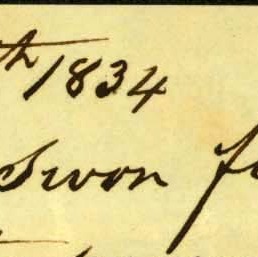 th 1834
Swon f